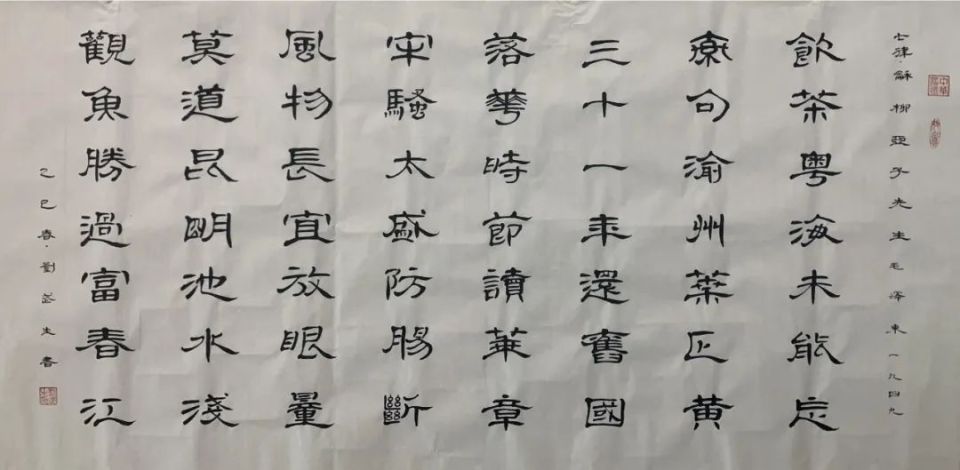 七律·龢柳亞子先生毛澤東一九四九
飲茶粵海未能忘
索句渝州葉正黃
三十一年還舊國
落華時節讀華章
牢騷太盛防腸斷
風物長宜放眼量
莫道昆明池水淺
觀魚勝過富春江
乙巳春·劉生書